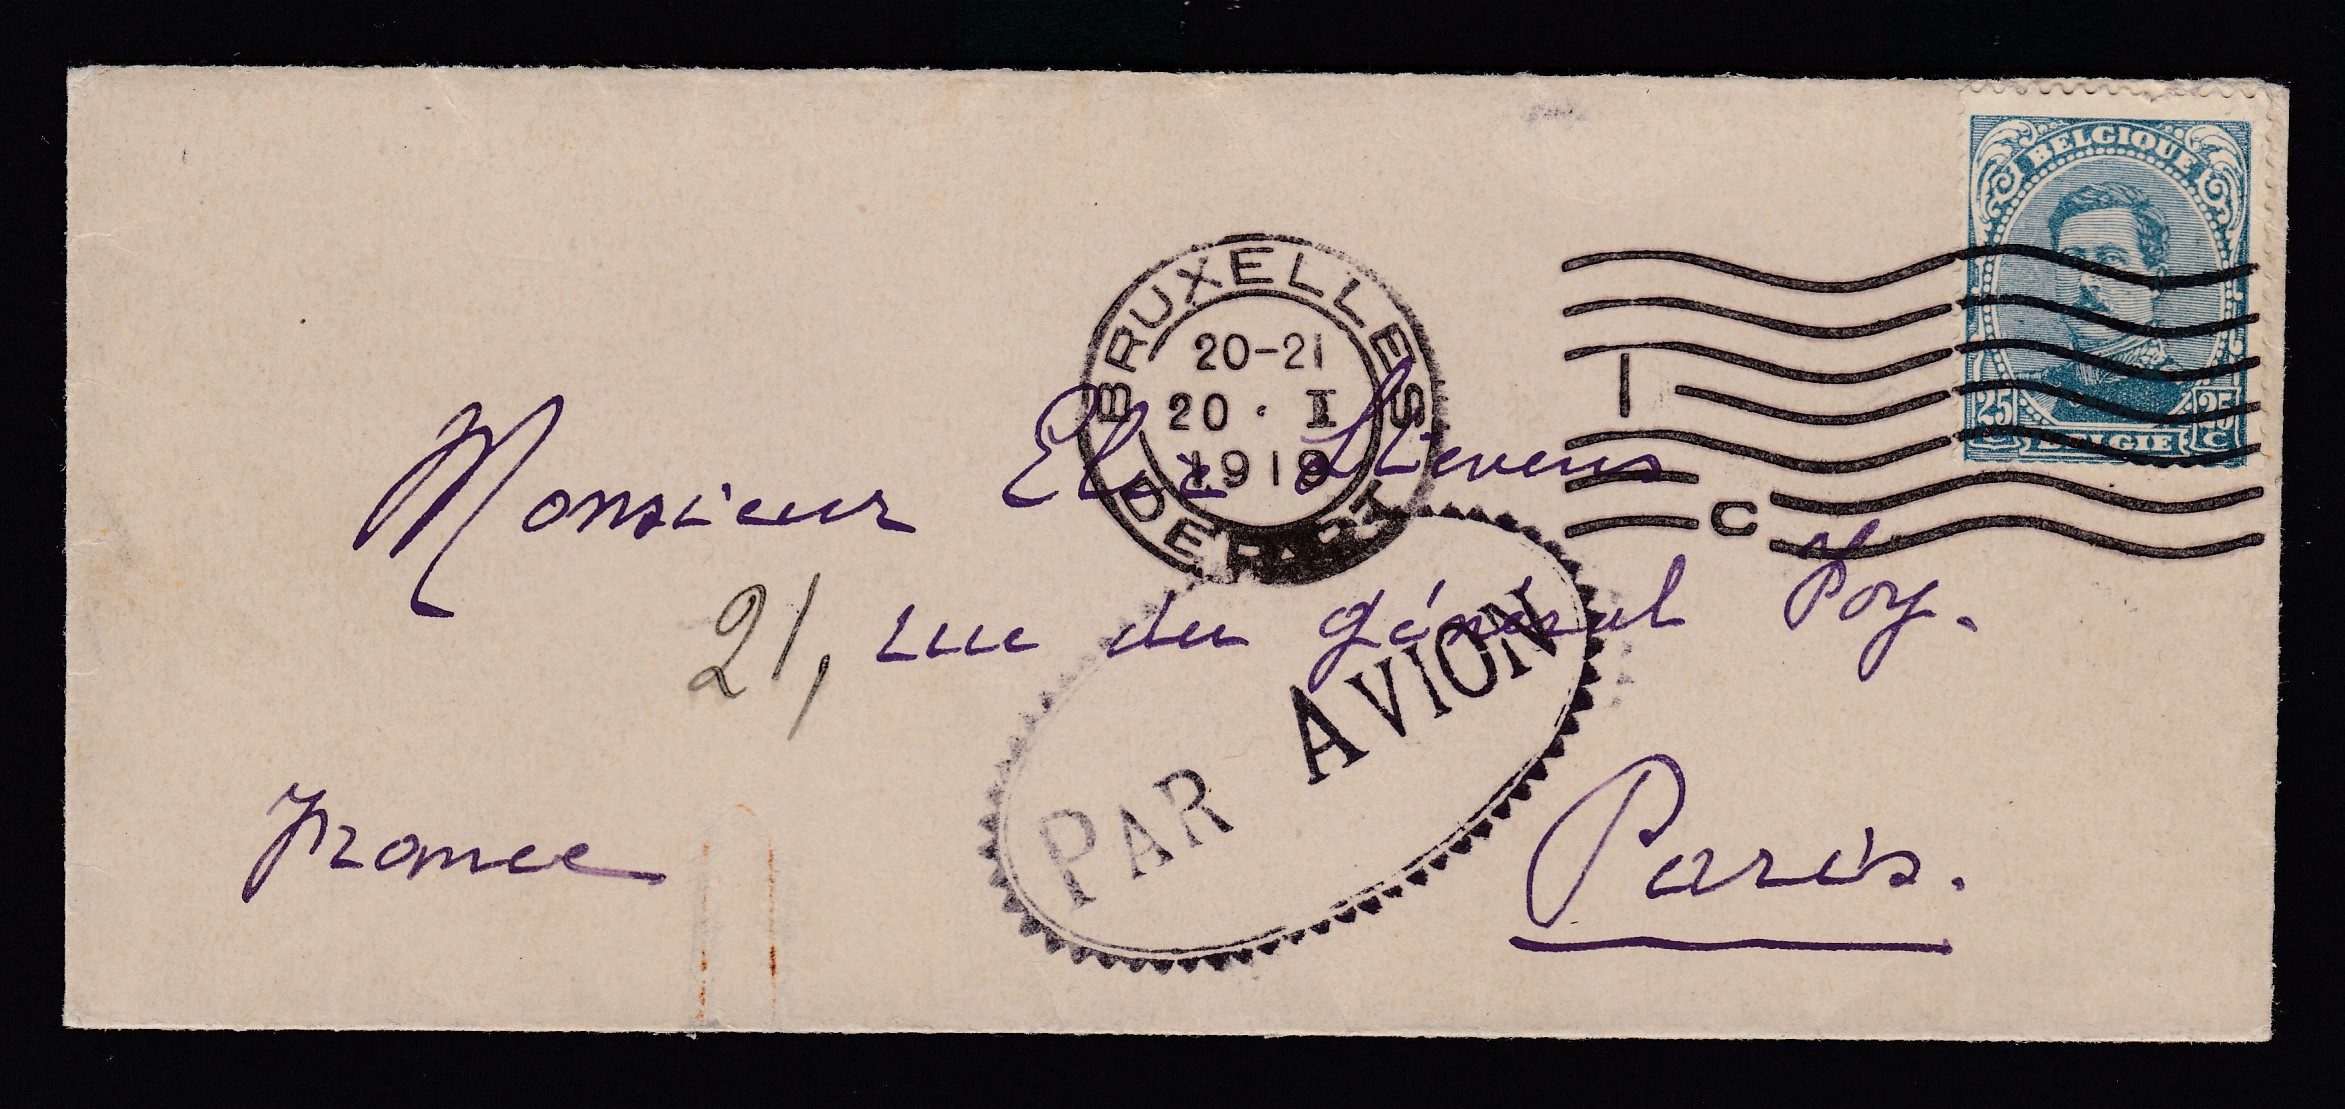 BELGIQUE
25 C
25 C
BELGIE
BRUXELLES
20-21
20 · I
1919
DEPART
1 C
Monsieur Eloi Stevens
21, rue du général Foy.
PAR AVION
France
Paris.